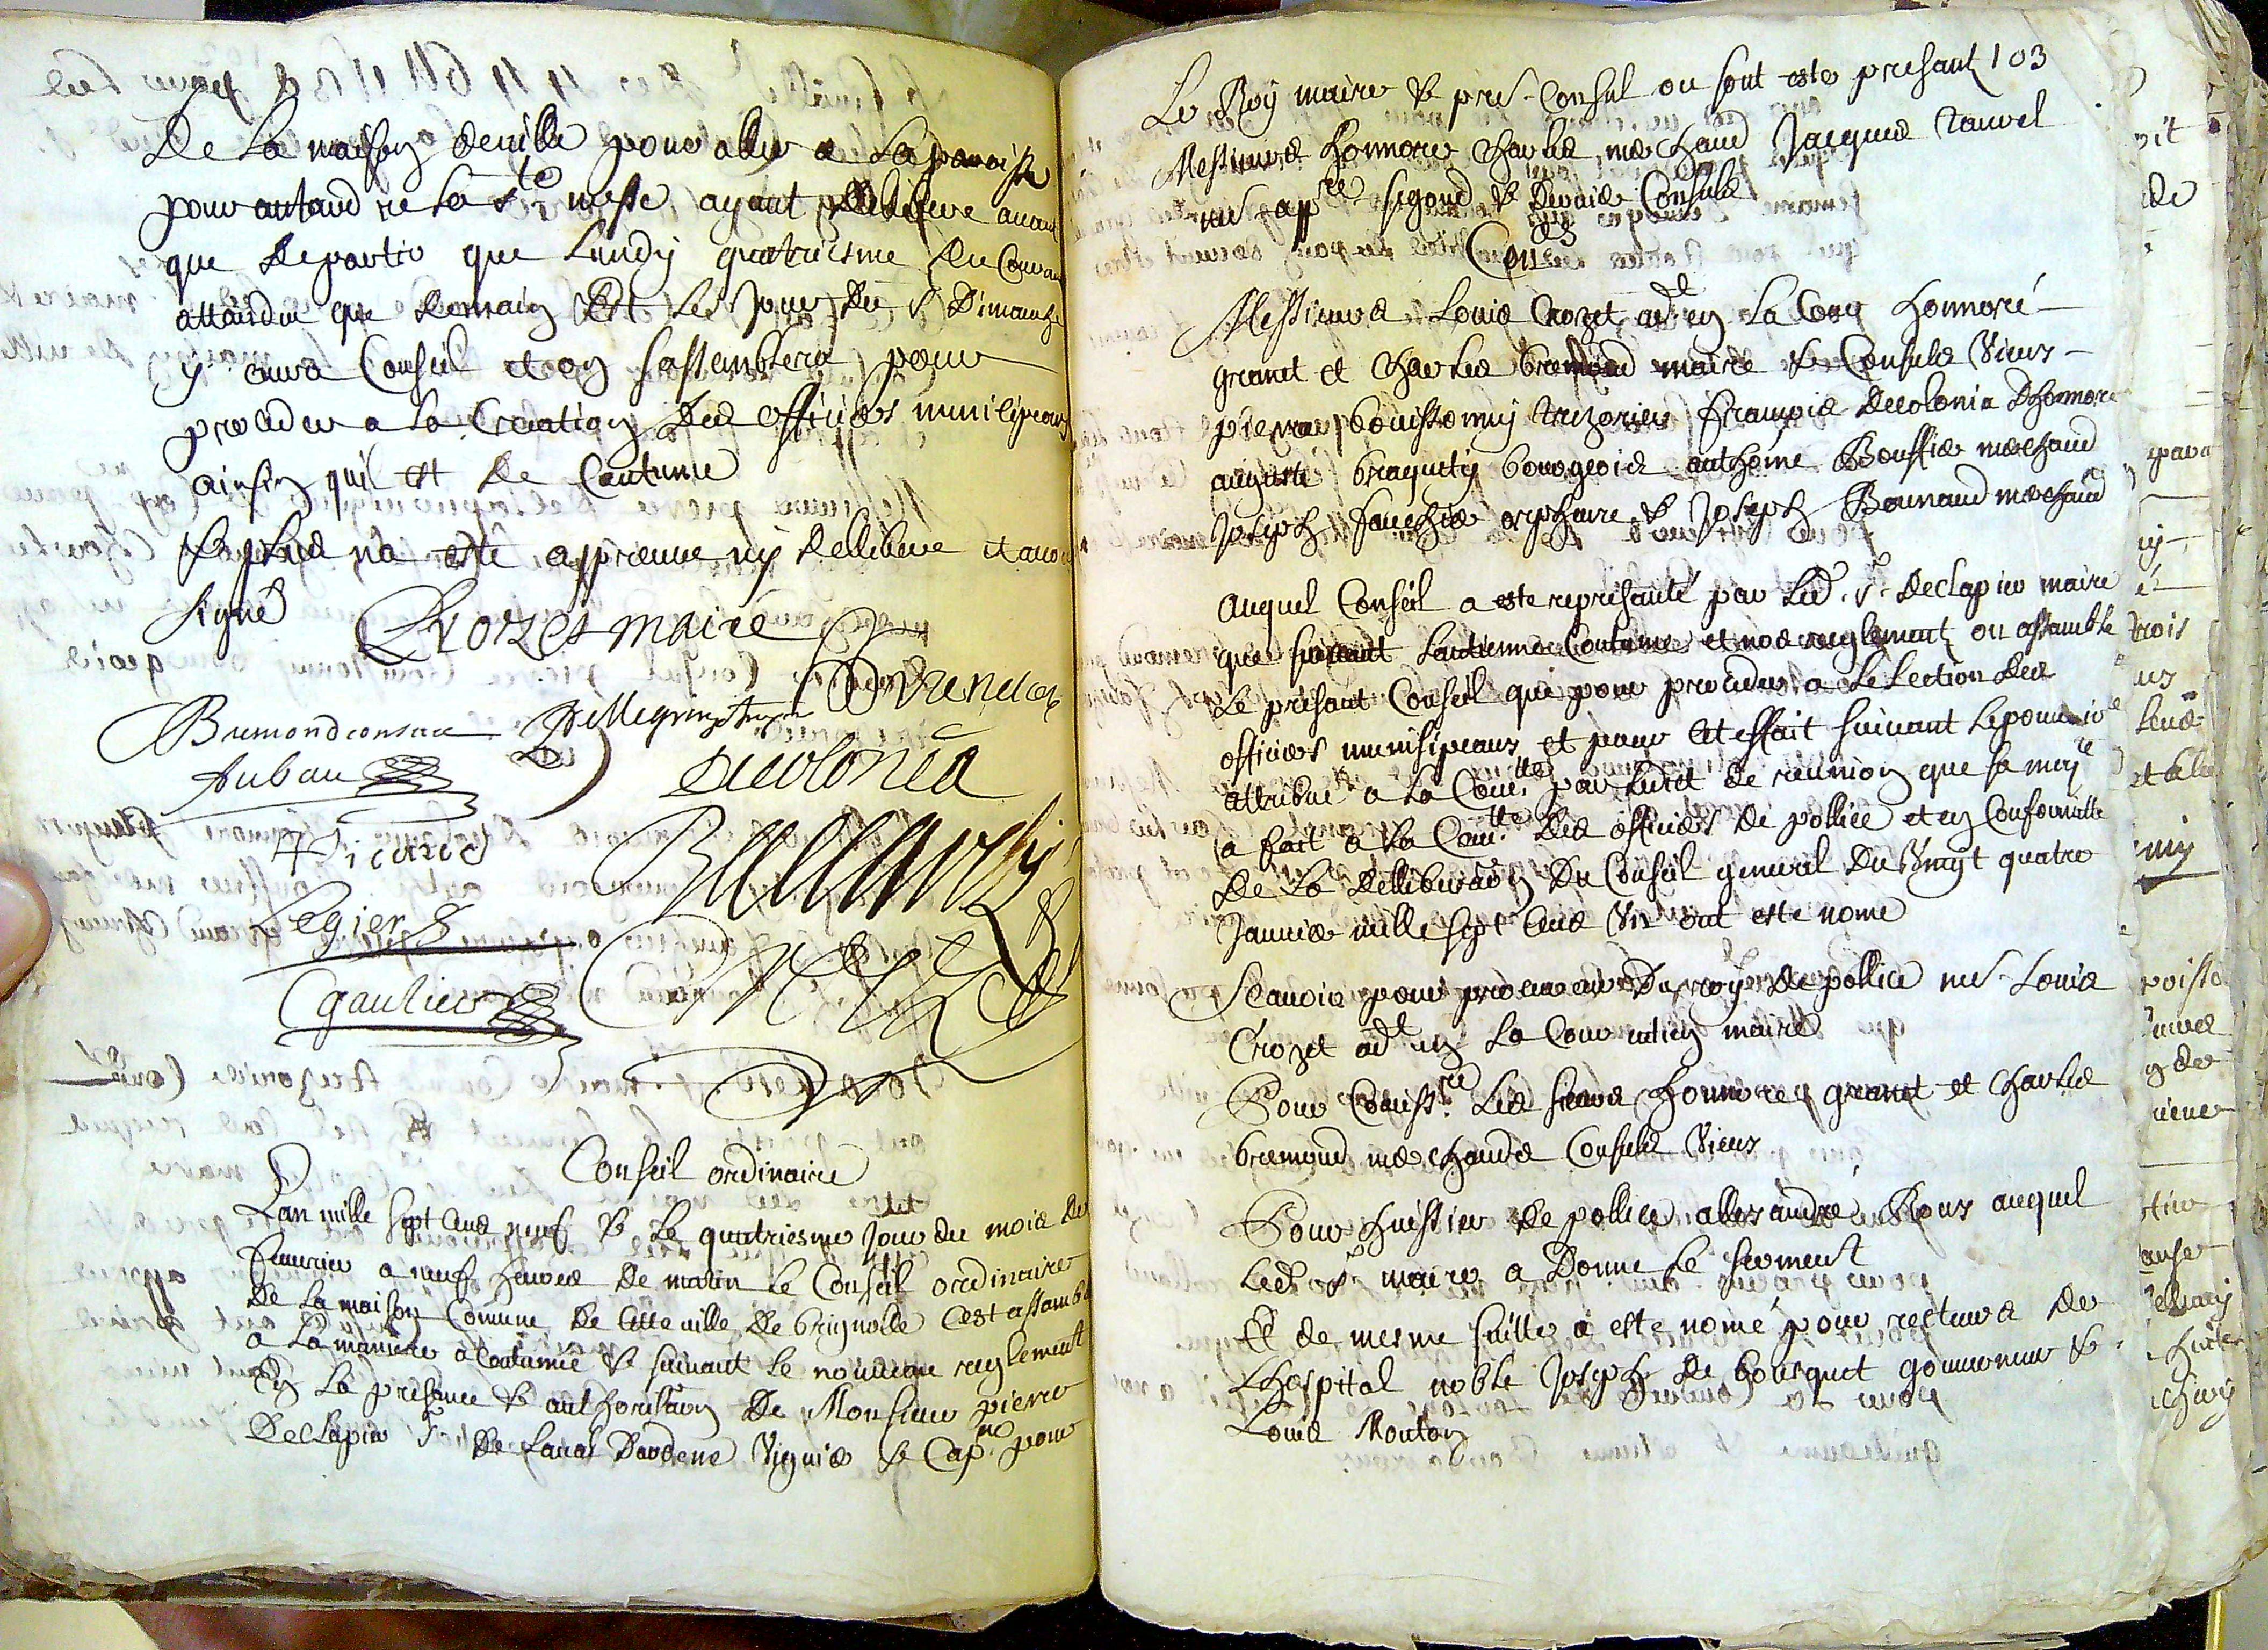 De La maison de ville pour aller a La paroisse
pour antandre La Ste messe ayant dellibere avant
que de partir que Lundy quatriesme du Courant
attandu que demain Est Le Jour du St Dimanche
y aura Conseil et on sassemblera pour
proceder a La Creation des officies municipeaux
ainsin quil est de Coutume
Le plus na esté approuve ny dellibere et avons
signé
Crozet maire
Bremond consul
Auban
decolonia
Ricard
Legier
gautier
Conseil ordinaire
Lan mille sept Cens neuf & Le quatriesme Jour du mois de
feuvrier a neuf heures de matin Le Conseil ordinaire
De La maison Comune De Cette ville De brignolle Cest assamblé
a La maniere acoutumée & suivant Le nouveau reglement
En La presance & authorisation De Monsieur pierre
Declapier Sr De Laval Dardene Viguier & Capne pour
Le Roy maire & pre. Consul ou sont este presant 103
Messieurs honnore Charles marchand Jacques ravel
me appre segond & Dernier Consuls
Coners
Messieurs Louis Crozet adt en La Cour honnoré
granet et Charles bremond maire & Consuls Vieux
pierre bouissonny trezorier francois decolonia Dhonnore
auguste braquety bourgeois anthoine Bouffier marchand
Joseph fauchier orphevre & Joseph Bounaud marchand
Auquel Conseil a este represanté par Led. Sr. Declapier maire
que suivant Lantienne Coutume et nos reglement on assamble
Le presant Conseil qui pour proceder a Lelection des
officies munisipeaux et pour Cet effait suivant Le pouvoir
attribué a La Comte par Ledit de reunion que sa majte
a fait a La Comte des officies de pollice et en Conformitte
De La Delliberation Du Conseil general Du Vingt quatre
Janvier mille sept Cens Six ont este nome
Scavoir pour procureur Du roy de pollice me Louis
Crozet adt en La Cour entien maire
Pour Comissre Les sieurs honnoré granet et Charles
bremond marchands Consuls Vieux
Pour huissier de pollice allexandre Roux auquel
Led. Sr maire a Donne Le serment
Et de mesme suitte a este nomé pour recteurs de
Lhospital noble Joseph de bousquet gouverneur &
Louis Mouton